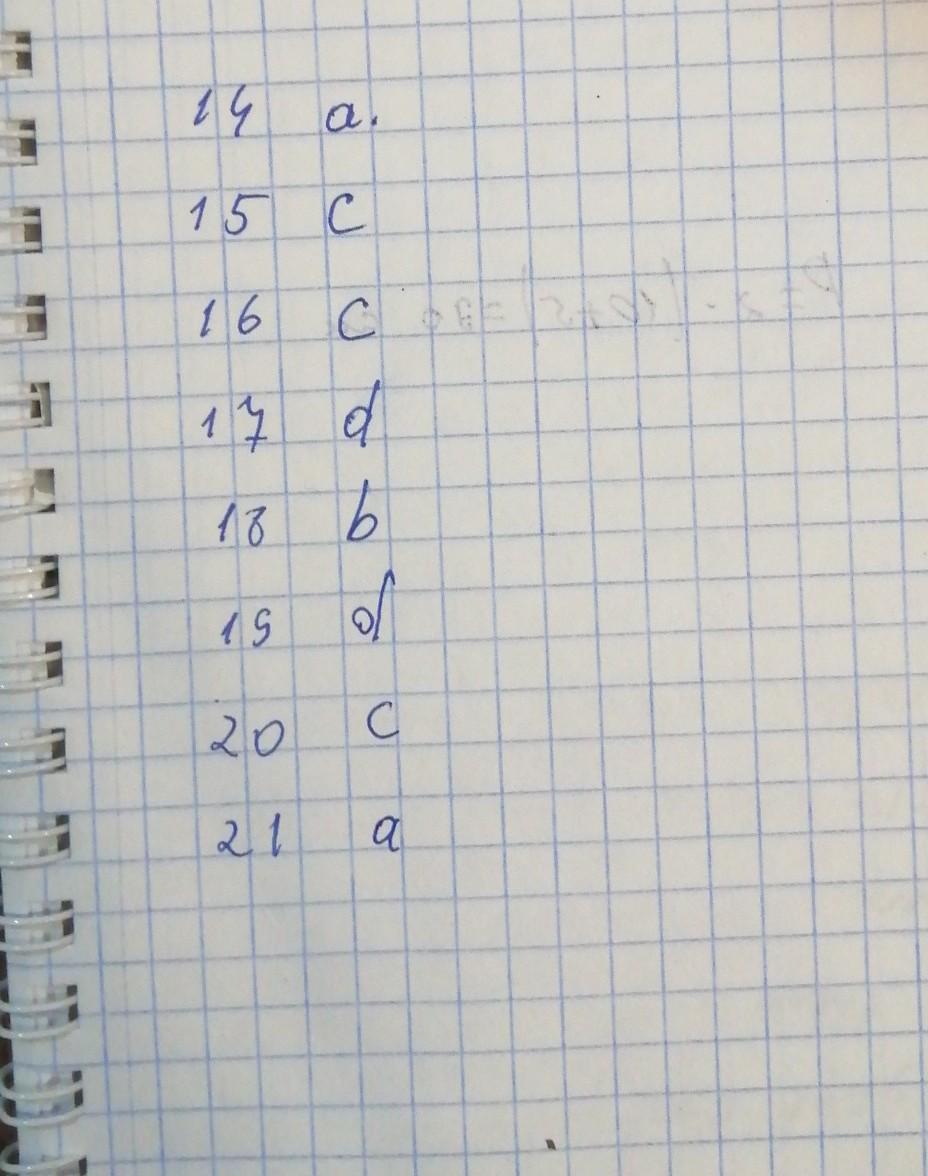 14 a.
15 c
16 c
17 d
18 b
19 d
20 c
21 a